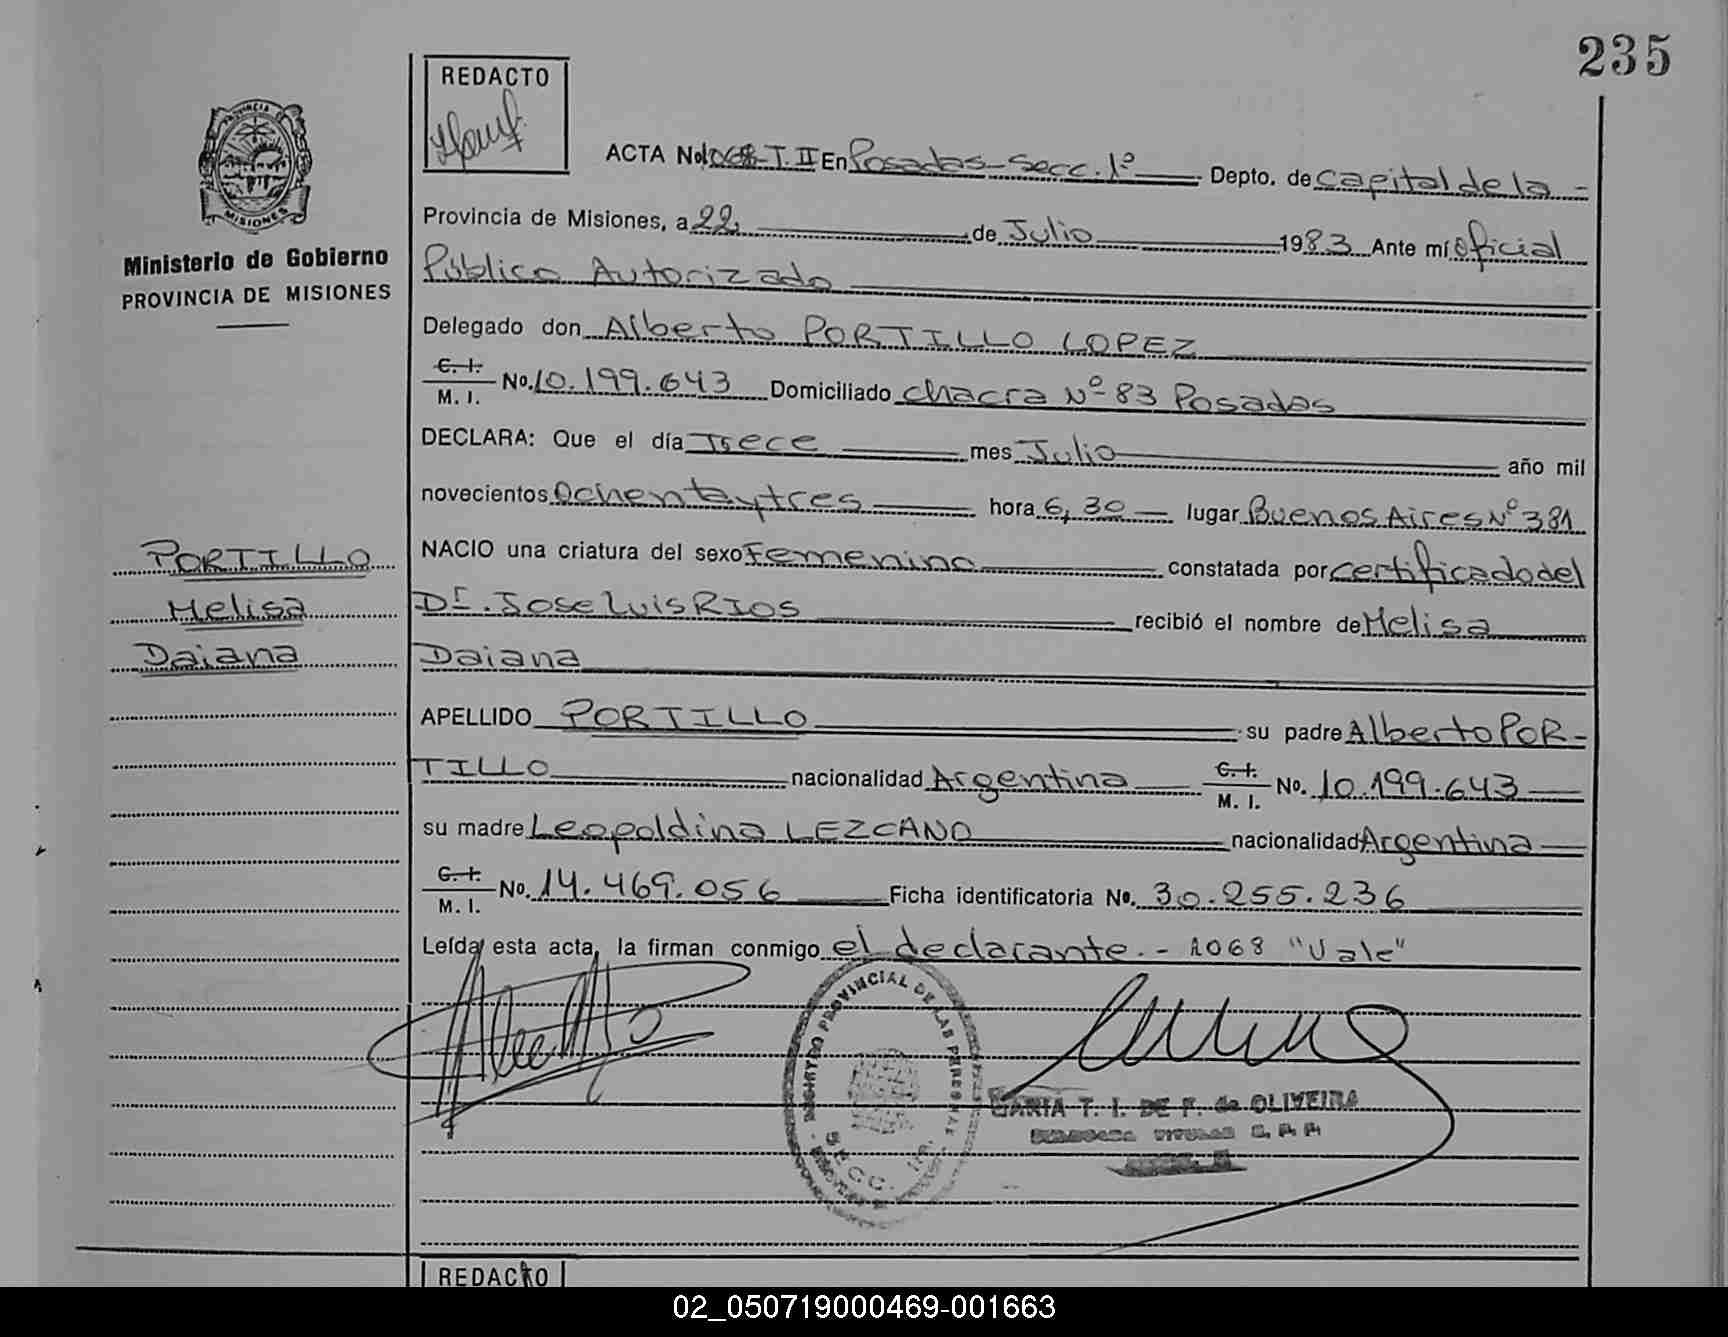 235
REDACTO
ACTA No. 1068-T. II En Posadas-Secc. 1º Depto. de Capital de la -
Provincia de Misiones, a 22 de Julio 1983 Ante mí oficial
Público Autorizado
Delegado don Alberto PORTILLO LOPEZ
C. I.
M. I.
No. 10.199.643 Domiciliado chacra Nº 83 Posadas
DECLARA: Que el día Trece mes Julio año mil
novecientos Ochentaytres hora 6,30 lugar Buenos Aires Nº 381
NACIO una criatura del sexo Femenino constatada por certificado del
Dr. Jose Luis RIOS recibió el nombre de Melisa
Daiana
APELLIDO PORTILLO su padre Alberto POR-
TILLO nacionalidad Argentina C. I. M. I. No. 10.199.643
su madre Leopoldina LEZCANO nacionalidad Argentina
C. I.
M. I.
No. 14.469.056 Ficha identificatoria No. 30.255.236
Leída esta acta, la firman conmigo el declarante. - 1068 "Vale"
PROVINCIA DE
MISIONES
Ministerio de Gobierno
PROVINCIA DE MISIONES
PORTILLO
Melisa
Daiana
REGISTRO PROVINCIAL DE LAS PERSONAS
SECC. 1ra.
MARIA T. I. DE F. de OLIVEIRA
REDACTO
02_050719000469-001663